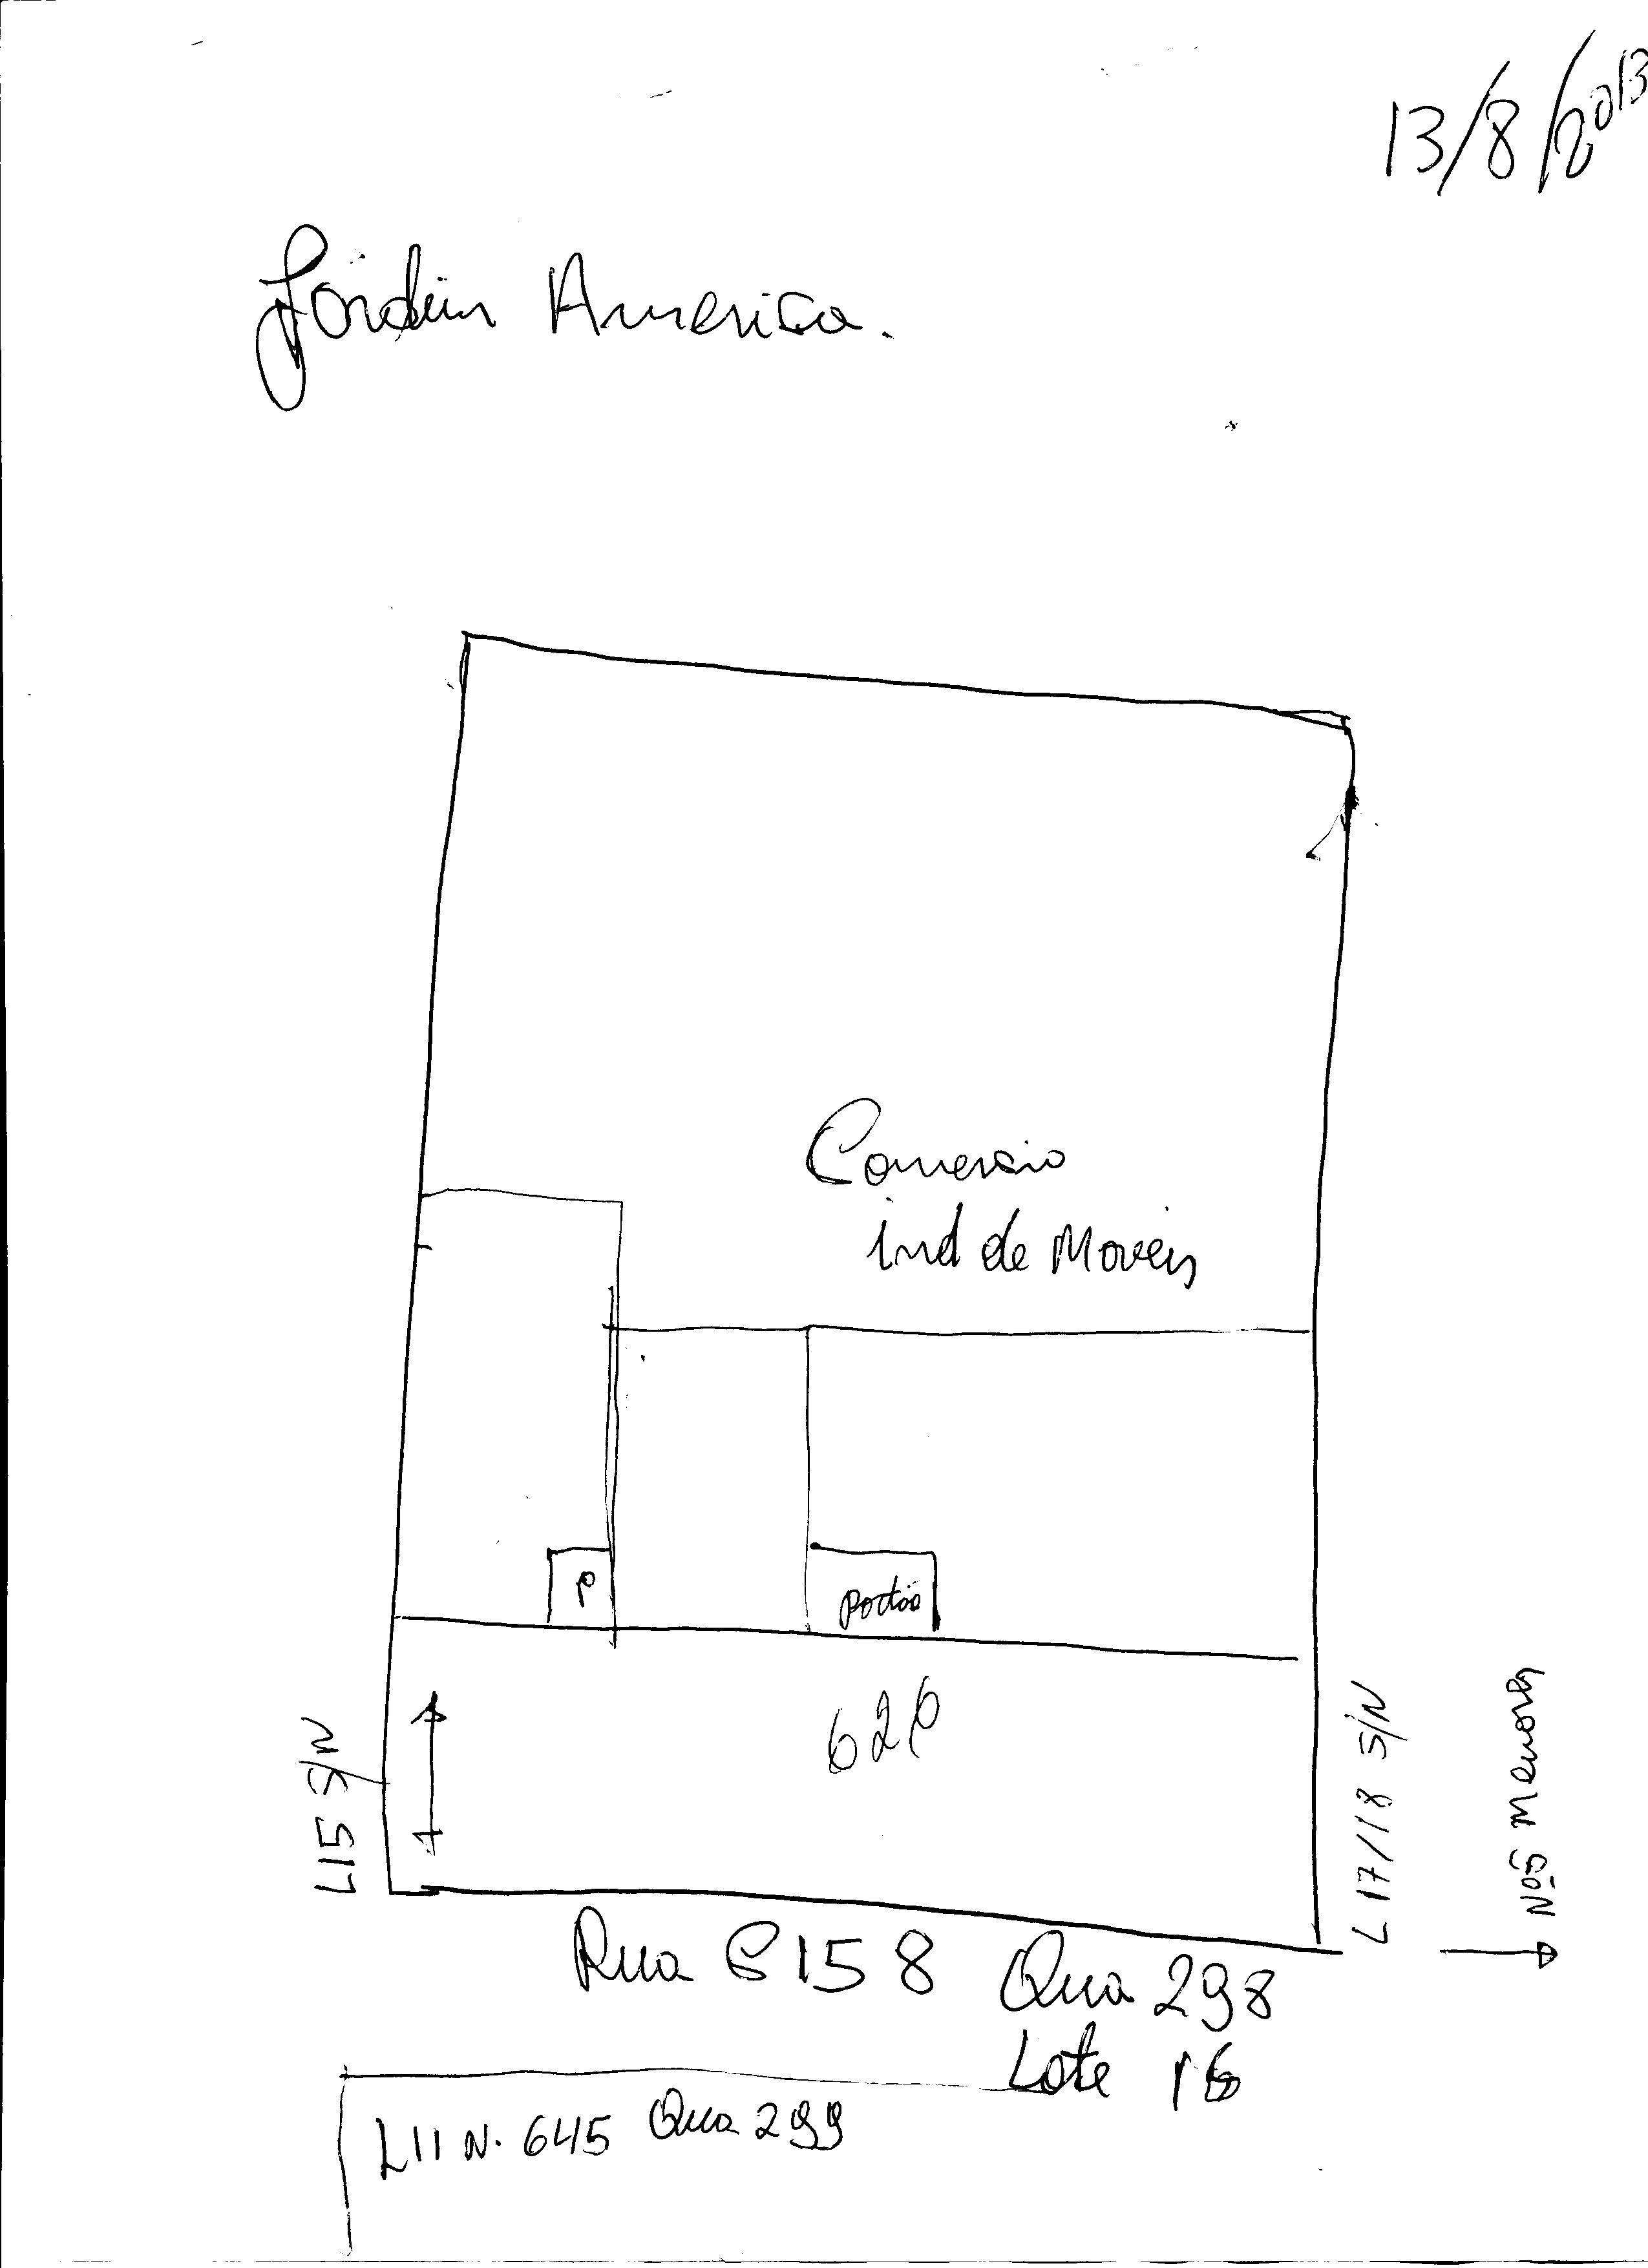 13/8/2013
Jardim America.
Comercio
ind de Moveis
P
portão
620
L15 S/N
L 17/18 S/N
Nos Menores
Rua C158 Qua 298
Lote 16
L11 N. 645 Qua 299